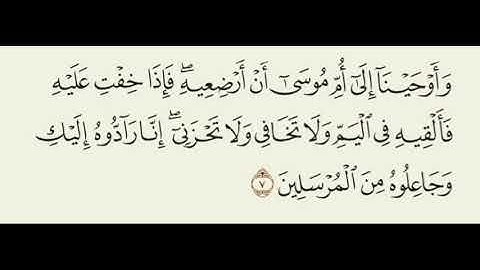 وَأَوْحَيْنَآ إِلَىٰٓ أُمِّ مُوسَىٰٓ أَنْ أَرْضِعِيهِ ۖ فَإِذَا خِفْتِ عَلَيْهِ
فَأَلْقِيهِ فِى ٱلْيَمِّ وَلَا تَخَافِى وَلَا تَحْزَنِىٓ ۖ إِنَّا رَآدُّوهُ إِلَيْكِ
وَجَاعِلُوهُ مِنَ ٱلْمُرْسَلِينَ ٧